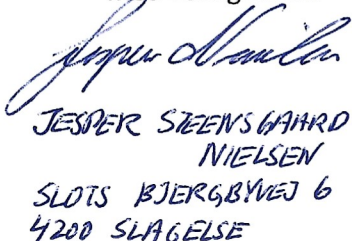 Jesper Nielsen
JESPER STEENSGAARD
NIELSEN
SLOTS BJERGBYVEJ 6
4200 SLAGELSE